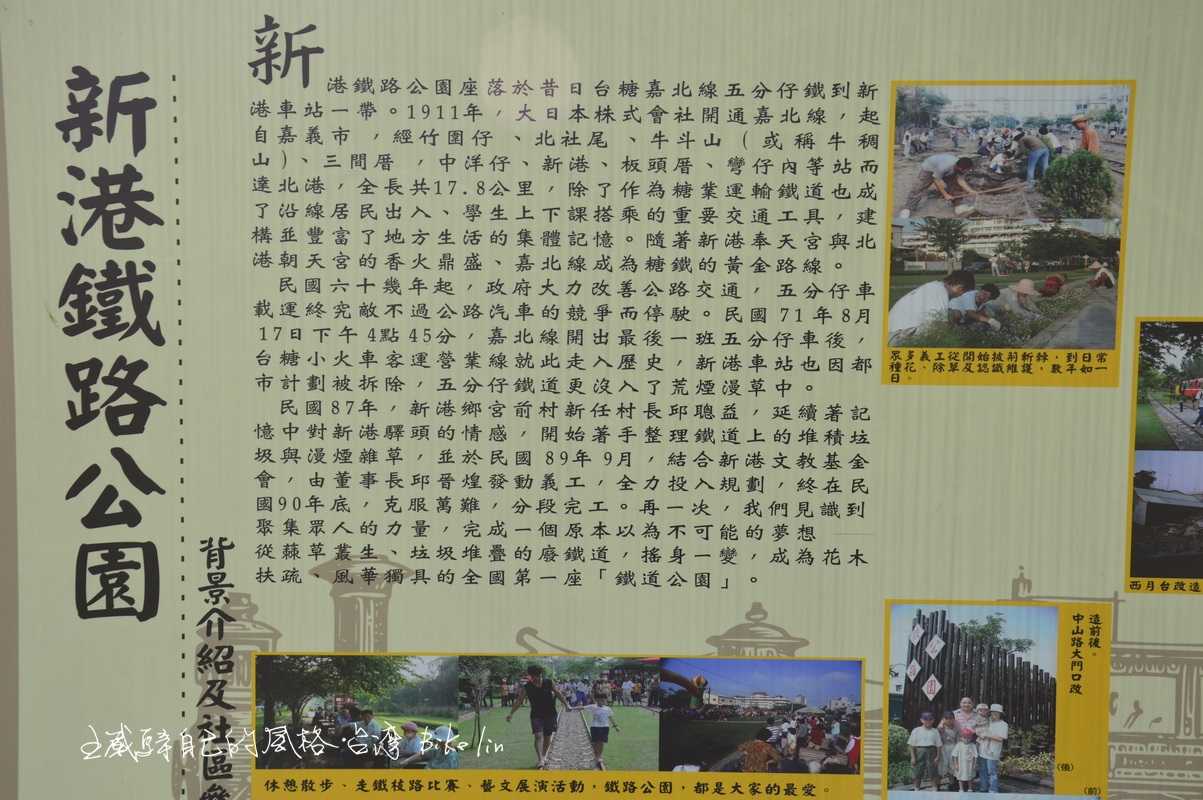 新港鐵路公園
背景介紹及社區參
新
港鐵路公園座落於昔日台糖嘉北線五分仔鐵到新
港車站一帶。1911年，大日本株式會社開通嘉北線，起
自嘉義市，經竹圍仔、北社尾、牛斗山(或稱牛稠
山)、三間厝，中洋仔、新港、板頭厝、彎仔內等站而
達北港，全長共17.8公里，除了作為糖業運輸鐵道也成
了沿線居民出入、學生上下課搭乘的重要交通工具，建
構並豐富了地方生活的集體記憶。隨著新港奉天宮與北
港朝天宮的香火鼎盛、嘉北線成為糖鐵的黃金路線。
民國六十幾年起，政府大力改善公路交通，五分仔車
載運終究敵不過公路汽車的競爭而停駛。民國71年8月
17日下午4點45分，嘉北線開出最後一班五分仔車後，
台糖小火車客運營業線就此走入歷史，新港車站也因都
市計劃被拆除，五分仔鐵道更沒入了荒煙漫草中。
民國87年，新港鄉宮前村新任村長邱聰益，延續著記
憶中對新港驛頭的情感，開始著手整理鐵道上的堆積垃
圾與漫煙雜草，並於民國89年9月，結合新港文教基金
會，由董事長邱晉煌發動義工，全力投入規劃，終在民
國90年底，克服萬難，分段完工。再一次，我們見識到
聚集眾人的力量，完成一個原本以為不可能的夢想——
從蕀草叢生、垃圾堆疊的廢鐵道，搖身一變，成為花木
扶疏、風華獨具的全國第一座「鐵道公園」。
眾多義工從開始披荊斬棘，到日常
種花、除草及認識維護，數年如一
日。
西月台改造
造前後。
中山路大門口改
(後)
(前)
休憩散步、走鐵枝路比賽、藝文展演活動，鐵路公園，都是大家的最愛。
騎自己的風格·台灣 Bike lin